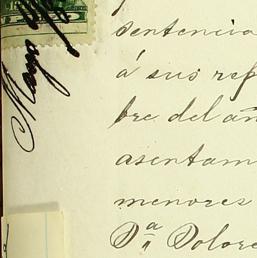 Mayo
sentencia
á sus rep
bre del añ
asentam
menores
Dª Dolore